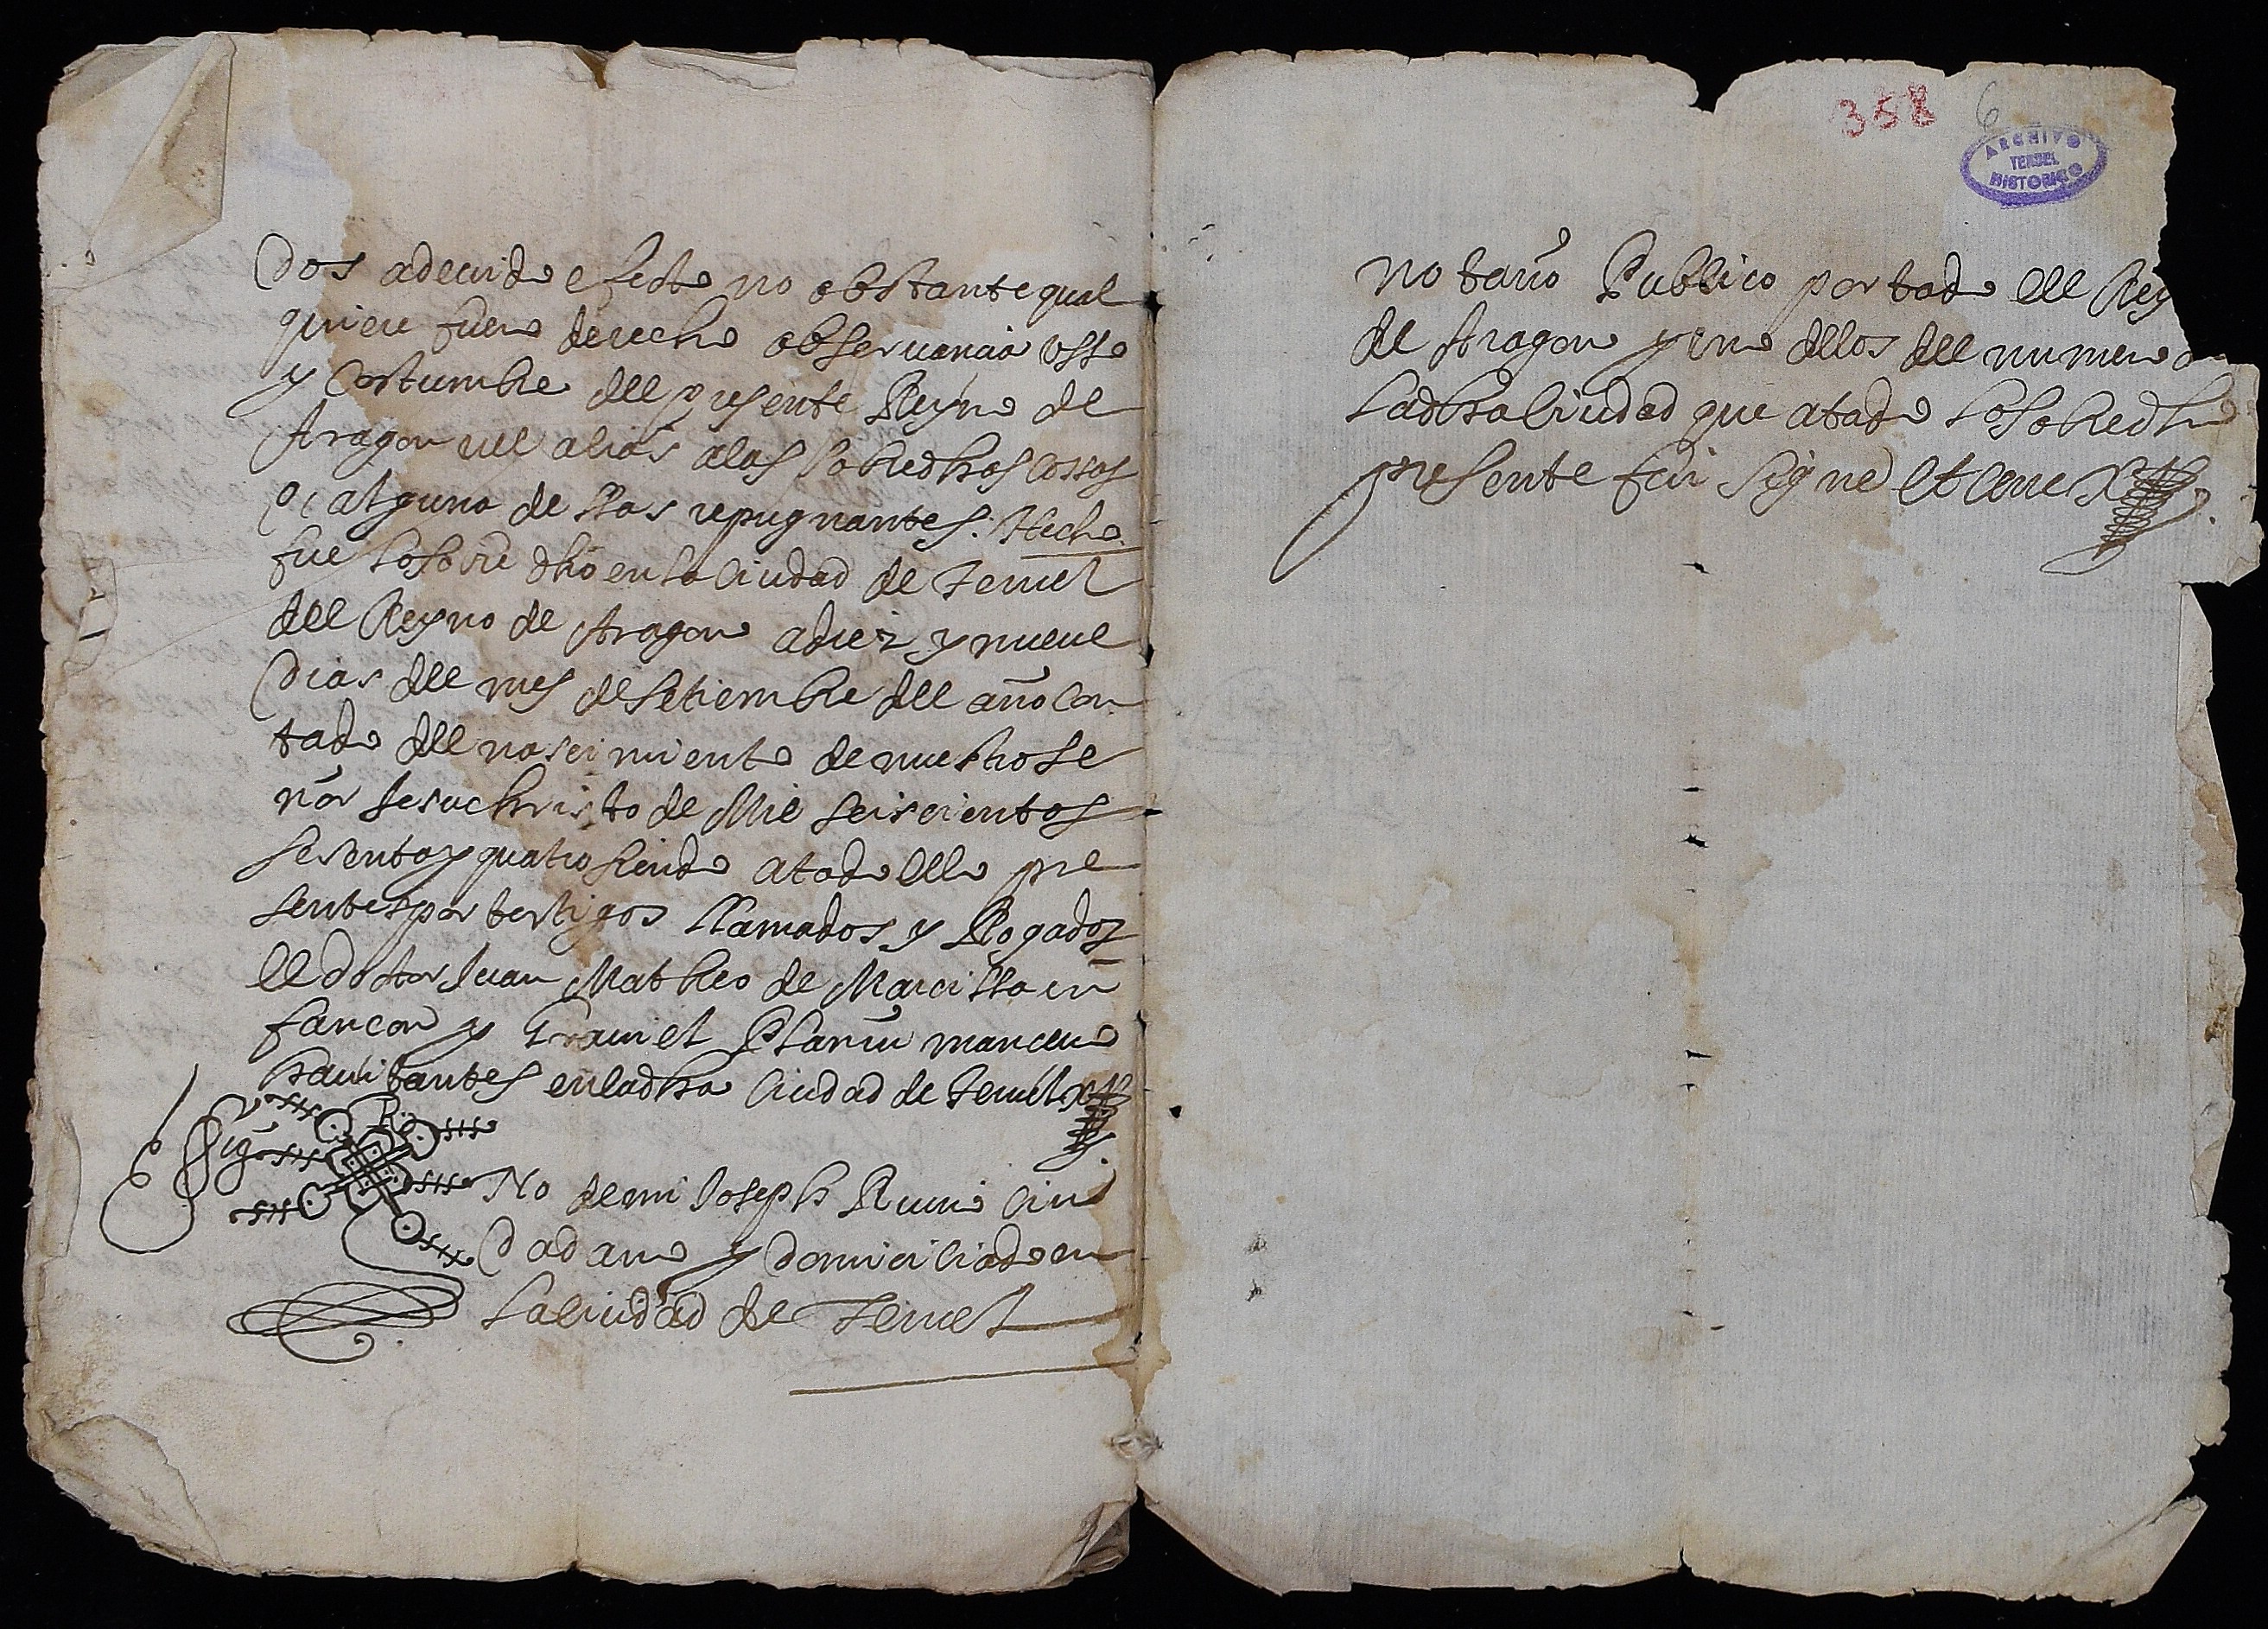 dos a deuido efecto no obstante qual
quiere fuero derecho obseruancia vsso
y costumbre del presente Reyno de
Aragon vel alias a las sobredhas cossas
o alguna dellas repugnantes. Hecho
fue lo sobre dho en la ciudad de Teruel
del Reyno de Aragon a diez y nueue
dias del mes de Setiembre del año con
tado del nascimiento de nuestro Se
ñor Jesuchristo de Mil seiscientos
sesenta y quatro siendo a todo ello pre
sentes por testigos llamados y Rogados
el doctor Juan Matheo de Marcilla in
fançon y mancebo
hauitantes en la dha ciudad de Teruel
Sig No de mi Joseph ciu
dadano y domiciliado en
la ciudad de Teruel
358 6
ARCHIVO
TERUEL
HISTORICO
notario Publico por todo el Rey
de Aragon y uno de los del numero
la dha ciudad que a todo lo sobredho
presente fui signe et cerre